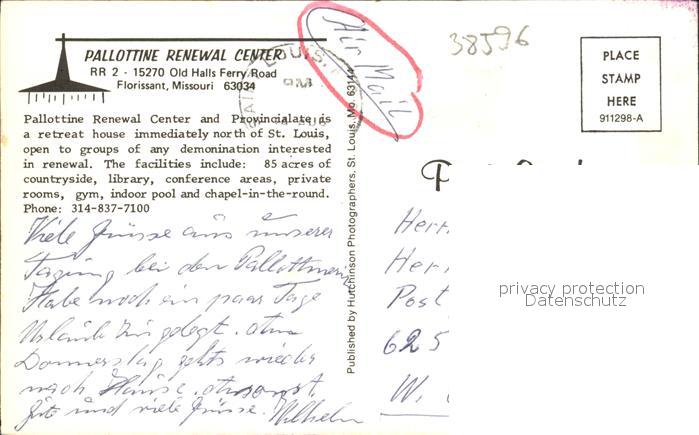 PALLOTTINE RENEWAL CENTER
RR 2 - 15270 Old Halls Ferry Road
Florissant, Missouri 63034
Pallottine Renewal Center and Provincialate is
a retreat house immediately north of St. Louis,
open to groups of any demonination interested
in renewal. The facilities include: 85 acres of
countryside, library, conference areas, private
rooms, gym, indoor pool and chapel-in-the-round.
Phone: 314-837-7100
Viele Grüsse aus unserer
Tagung bei den
Habe noch ein paar Tage
Urlaub
Donnerstag gehts wieder
nach Hause.
und viele Grüsse. Wilhelm
Published by Hutchinson Photographers, St. Louis, Mo. 63144
LOUIS,
PM
Air Mail
38596
PLACE
STAMP
HERE
911298-A
Herr
Her
Post
625
W.
privacy protection
Datenschutz